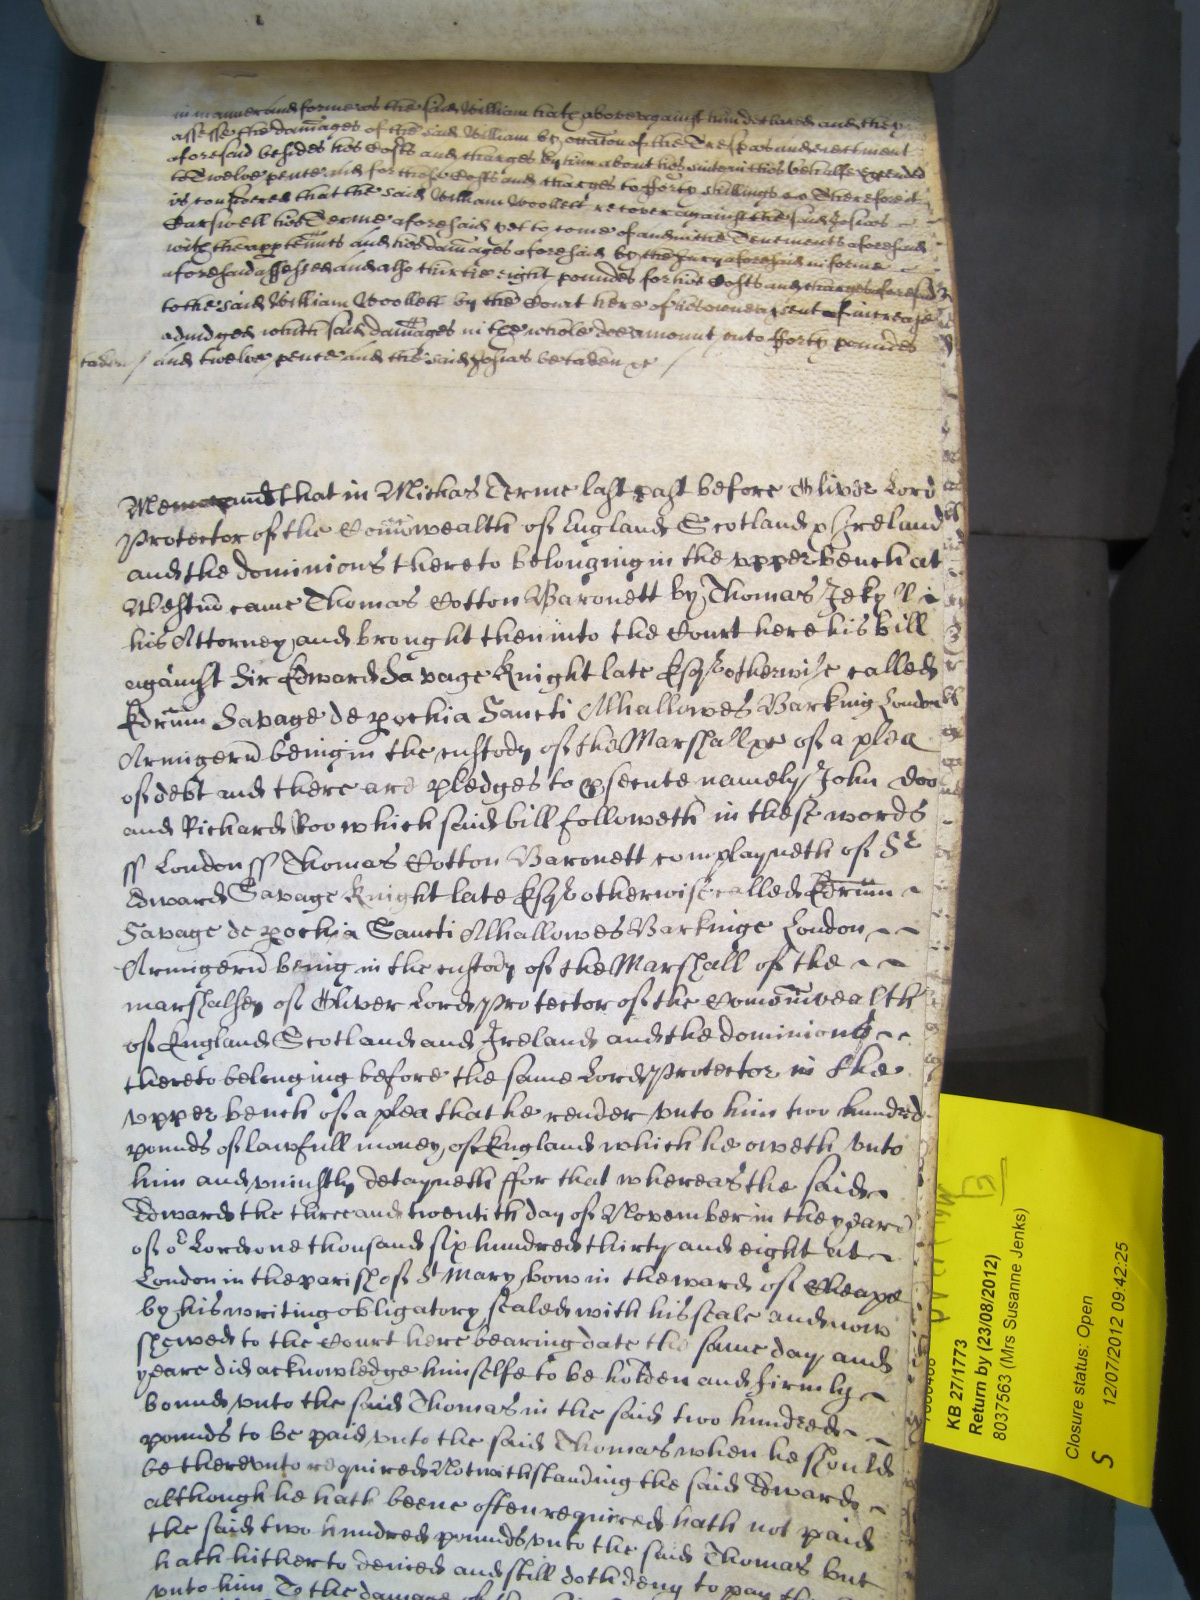 in manner and forme as the said William hath above against him declared and they
assesse the damages of the said William by occacon of the Trespas and eiectment
aforesaid besides his Costs and charges by him about his suite in this behalfe expended
to Twelve pence and for those Costs and charges to fforty shillings Therefore it
is considered that the said William Woollett recover against the said Josias
Carswell his Terme aforesaid yet to come of and in the Tenements aforesaid
with the apptennts and his damages aforesaid by the Jury aforesaid in forme
aforesaid assessed and also thirtie eight poundes for his Costs and charges aforesd
to the said William Woollett by the Court here of his owne assent of increase
adiudged which said damages in the whole doe amount unto fforty poundes
taken / and twelve pence and the said Josias be taken &c /
Memorand that in Michas Terme last past before Oliver Lord
Protector of the Comonwealth of England Scotland & Ireland
and the dominions thereto belonging in the upper bench at
Westm came Thomas Cotton Baronett by Thomas Jekyll
his Attorney and brought then into the Court here his bill
against Sir Edward Savage Knight late Esqr otherwise called
Edrum Savage de pochia Sancti Alhallowes Barking London
Armigerū being in the custody of the Marshall &c of a plea
of debt and there are pledges to psecute namely John Doo
and Richard Roo which said bill followeth in these words
ss London ss Thomas Cotton Baronett complayneth of Sr
Edward Savage Knight late Esqr otherwise called Edrum
Savage de pochia Sancti Alhallowes Barkinge London
Armigerū being in the custody of the Marshall of the
marshalsey of Oliver Lord Protector of the Comonwealth
of England Scotland and Ireland and the dominions
thereto belonging before the same Lord Protector in the
upper bench of a plea that he render unto him two hundred
pounds of lawfull money of England which he oweth unto
him and uniustly detayneth ffor that whereas the said
Edward the three and twentith day of November in the yeare
of or Lord one thousand six hundred thirty and eight at
London in the parish of St Mary bow in the ward of Cheape
by his writing obligatory sealed with his seale and now
shewed to the Court here bearing date the same day and
yeare did acknowledge himselfe to be holden and firmly
bound unto the said Thomas in the said two hundred
pounds to be paid unto the said Thomas when he should
be thereunto required Notwithstanding the said Edward
although he hath beene often required hath not paid
the said two hundred pounds unto the said Thomas but
hath hitherto denied and still doth deny to pay
unto him To the damage of the
KB 27/1773
Return by (23/08/2012)
8037563 (Mrs Susanne Jenks)
Closure status: Open
S 12/07/2012 09:42:25